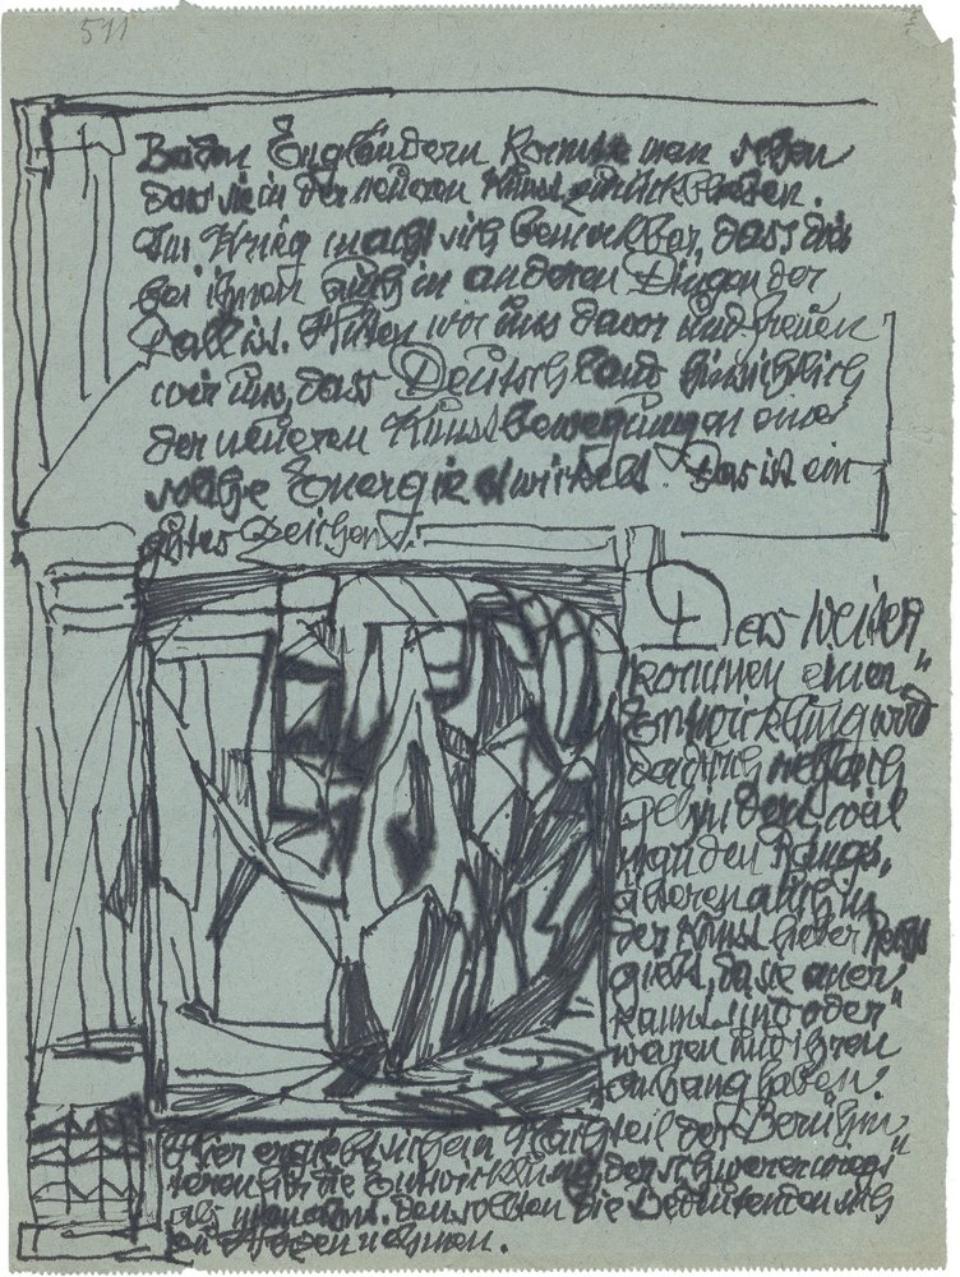 511
Bei den Engländern konnte man sehen
dass sie in der neueren Kunst zurückbleiben.
Im Krieg macht sich bemerkbar, dass dies
bei ihnen auch in anderen Dingen der
Fall ist. Hüten wir uns davor und freuen
wir uns, dass Deutschland hinsichtlich
der neueren Kunstbewegungen eine
solche Energie entwickelt. Das ist ein
gutes Zeichen.
Das Weiter„
kommen einer
Entwicklung wird
dadurch
weil
man den Rangs„
älteren auch in
der Kunst lieber
giebt, da sie aner„
kannt und oder
waren und ihren
anhang haben.
Hier ergiebt sich ein Nachteil der Berühm„
teren für die Entwicklung, der schwerer wiegt
als man ahnt. Den sollten die Bedeutenden sich
zu Herzen nehmen.